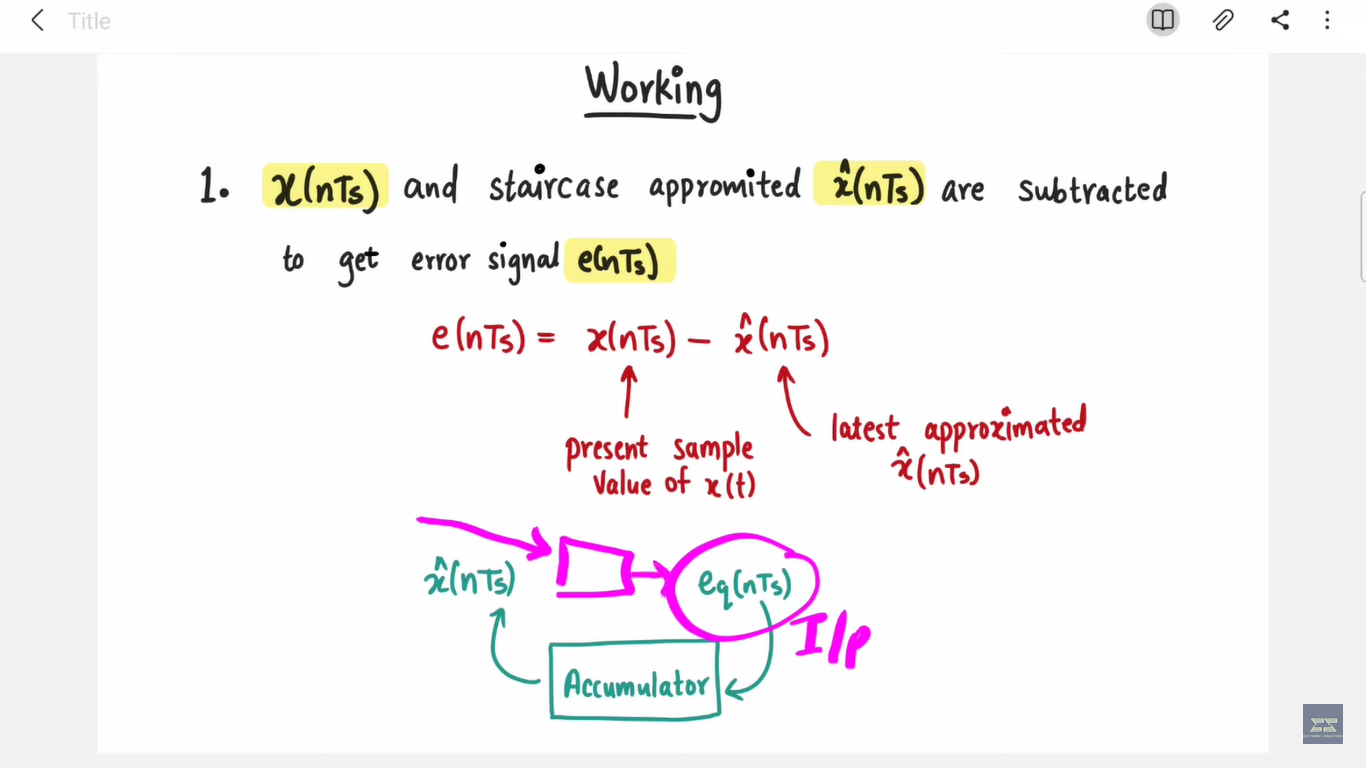 Title
Working
1. x(nTs) and staircase appromited x̂(nTs) are subtracted
to get error signal e(nTs)
e(nTs) = x(nTs) - x̂(nTs)
present sample
value of x(t)
latest approximated
x̂(nTs)
x̂(nTs)
eq(nTs)
I/P
Accumulator